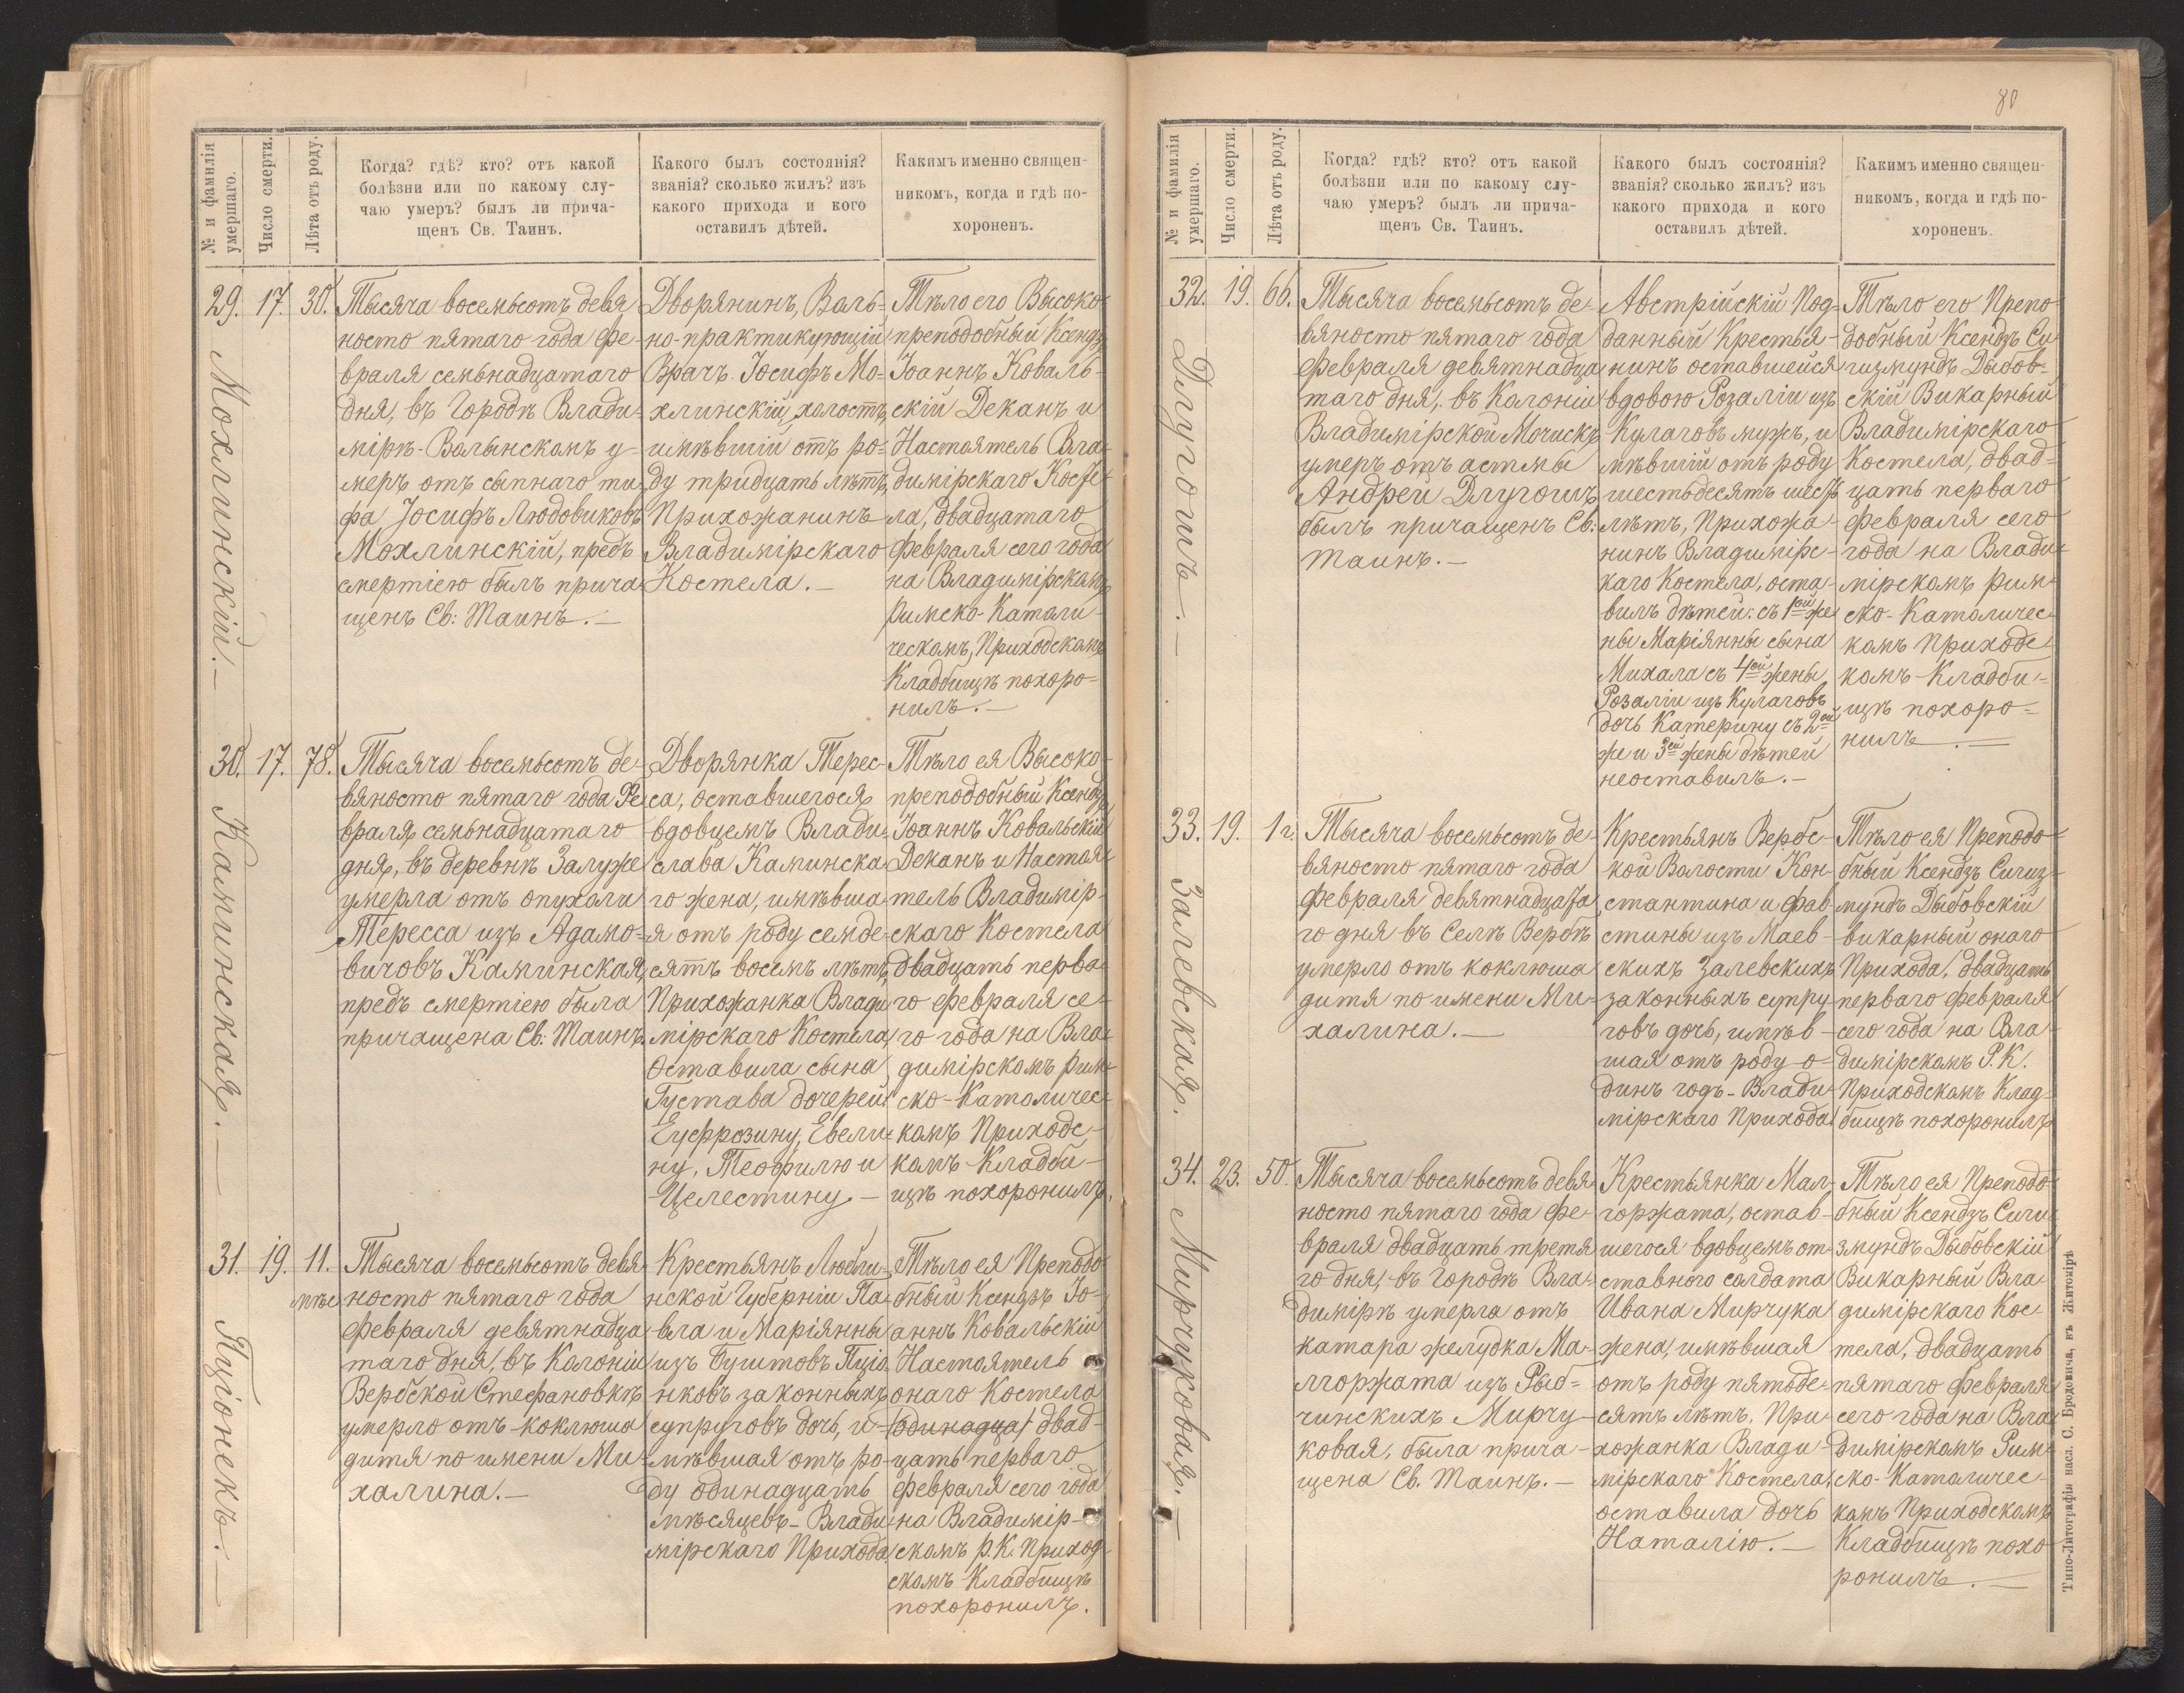 № и фамилія
умершаго.
Число смерти.
Лѣта отъ роду.
Когда? гдѣ? кто? отъ какой
болѣзни или по какому слу-
чаю умеръ? былъ ли прича-
щенъ Св. Таинъ.
Какого былъ состоянія?
званія? сколько жилъ? изъ
какого прихода и кого
оставилъ дѣтей.
Какимъ именно священ-
никомъ, когда и гдѣ по-
хороненъ.
29. Мохлинскій.-
17.
30.
Тысяча восемьсотъ девя
носто пятаго года Фе-
враля семьнадцатаго
дня, въ Городѣ Влади-
мірѣ-Волынскомъ у-
меръ отъ сыпнаго ти-
фа Іосифъ Людовиковъ
Мохлинскій, предъ
смертіею былъ прича-
щенъ Св: Таинъ.-
Дворянинъ, Воль-
но-практикующій
Врачъ Іосифъ Мо-
хлинскій, холостъ,
имѣвшій отъ ро-
ду тридцать лѣтъ,
Прихожанинъ
Владимірскаго
Костела.-
Тѣло его Высоко-
преподобный Ксендзъ
Іоаннъ Коваль-
скій Деканъ и
Настоятель Вла-
димірскаго Косте-
ла, двадцатаго
Февраля сего года
на Владимірскомъ
Римско-Католи-
ческомъ, Приходскомъ
Кладбищѣ похоро-
нилъ.-
30. Каминская.-
17.
78.
Тысяча восемьсотъ де-
вяносто пятаго года Фе-
враля семьнадцатаго
дня, въ деревнѣ Залуже
умерла отъ опухоли
Тересса изъ Адамо-
вичовъ Каминская,
предъ смертіею была
причащена Св: Таинъ.
Дворянка Терес-
са, оставшегося
вдовцемъ Влади-
слава Каминска-
го жена, имѣвша-
я отъ роду семде-
сятъ восемъ лѣтъ,
Прихожанка Влади-
мірскаго Костела,
Оставила сына
Густава дочерей:
Еуфрозину, Евели-
ну, Теофилю и
Целестину.-
Тѣло ея Высоко-
преподобный Ксендзъ
Іоаннъ Ковальскій
Деканъ и Настоя-
тель Владимір-
скаго Костела
двадцать перва-
го февраля се-
го года на Вла-
димірскомъ Рим-
ско-Католичес-
комъ Приходс-
комъ Кладби-
щѣ похоронилъ.
31. Пціонекъ.-
19.
11.
мѣс
Тысяча восемьсотъ девя-
носто пятаго года
Февраля девятнадца-
таго дня, въ Колоніи
Вербской Стефановкѣ
умерло отъ коклюша
дитя по имени Ми-
халина.-
Крестьянъ Любли-
нской Губерніи Па-
вла и Маріянны
изъ Буштовъ Пціо
нковъ законныхъ
супруговъ дочь, и-
мѣвшая отъ ро-
ду одинадцать
мѣсяцевъ-Влади-
мірскаго Прихода
Тѣло ея Преподо-
бный Ксендзъ Іо-
аннъ Ковальскій
Настоятель
онаго Костела
(одинадца) двад-
цать перваго
Февраля сего года
на Владимір-
скомъ Р.К. Приход-
скомъ Кладбищѣ
похоронилъ.
80
№ и фамилія
умершаго.
Число смерти.
Лѣта отъ роду.
Когда? гдѣ? кто? отъ какой
болѣзни или по какому слу-
чаю умеръ? былъ ли прича-
щенъ Св. Таинъ.
Какого былъ состоянія?
званія? сколько жилъ? изъ
какого прихода и кого
оставилъ дѣтей.
Какимъ именно священ-
никомъ, когда и гдѣ по-
хороненъ.
32. Длугошъ.-
19.
66.
Тысяча восемьсотъ де-
вяносто пятаго года
Февраля девятнадца
таго дня, въ Колоніи
Владимірской Мочискѣ
умеръ отъ астмы
Андрей Длугошъ
былъ причащенъ Св:
Таинъ.-
Австрійскій Под-
данный Крестья-
нинъ оставшейся
вдовою Розаліи изъ
Кулаговъ мужъ, и
мѣвшій отъ роду
шестьдесятъ шесть
лѣтъ, Прихожа-
нинъ Владимірс-
каго Костела, оста-
вилъ дѣтей: съ 1ой же
ны Маріянны сына
Михала съ 4ой жены
Розаліи изъ Кулаговъ
дочь Катерину съ 2ой
же и 3ей жены дѣтей
неоставилъ.-
Тѣло его Препо
добный Ксендзъ Си
гизмундъ Дыбов-
скій Викарный
Владимірскаго
Костела, двад-
цать перваго
Февраля сего
года на Влади-
мірскомъ Рим-
ско-Католичес-
комъ Приходс-
комъ Кладби-
щѣ похоро-
нилъ.-
33. Залевская.
19.
1 г.
Тысяча восемьсотъ де-
вяносто пятаго года
Февраля девятнадцата
го дня въ Селѣ Вербѣ
умерло отъ коклюша
дитя по имени Ми-
халина.-
Крестьянъ Вербс-
кой Волости Кон-
стантина и Фав-
стины изъ Маев-
скихъ Залевскихъ
законныхъ супру-
говъ дочь, имѣв-
шая отъ роду о-
динъ годъ-Влади-
мірскаго Прихода
Тѣло ея Преподо-
бный Ксендзъ Сигиз-
мундъ Дыбовскій
викарный онаго
Прихода, двадцать
перваго февраля
сего года на Вла-
димірскомъ Р.К.
Приходскомъ Клад-
бищѣ похоронилъ
34. Мирчуковая.-
23.
50.
Тысяча восемьсотъ девя
носто пятаго года Фе-
враля двадцать третя
го дня, въ Городѣ Вла-
димірѣ умерла отъ
катара желудка Ма-
лгоржата изъ Рыб-
чинскихъ Мирчу-
ковая, была прича-
щена Св. Таинъ.-
Крестьянка Мал-
горжата, остав-
шегося вдовцемъ от-
ставного солдата
Ивана Мирчука
жена, имѣвшая
отъ роду пятьде-
сятъ лѣтъ, При-
хожанка Влади-
мірскаго Костела,
оставила дочь
Наталію.-
Тѣло ея Преподо
бный Ксендзъ Сиги-
змундъ Дыбовскій
Викарный Вла-
димірскаго Кос-
тела, двадцать
пятаго февраля
сего года на Вла
димірскомъ Рим-
ско-Католичес-
комъ Приходскомъ
Кладбищѣ похо-
ронилъ.-
Типо-Литографія насл. С. Бродовича, въ Житомірѣ